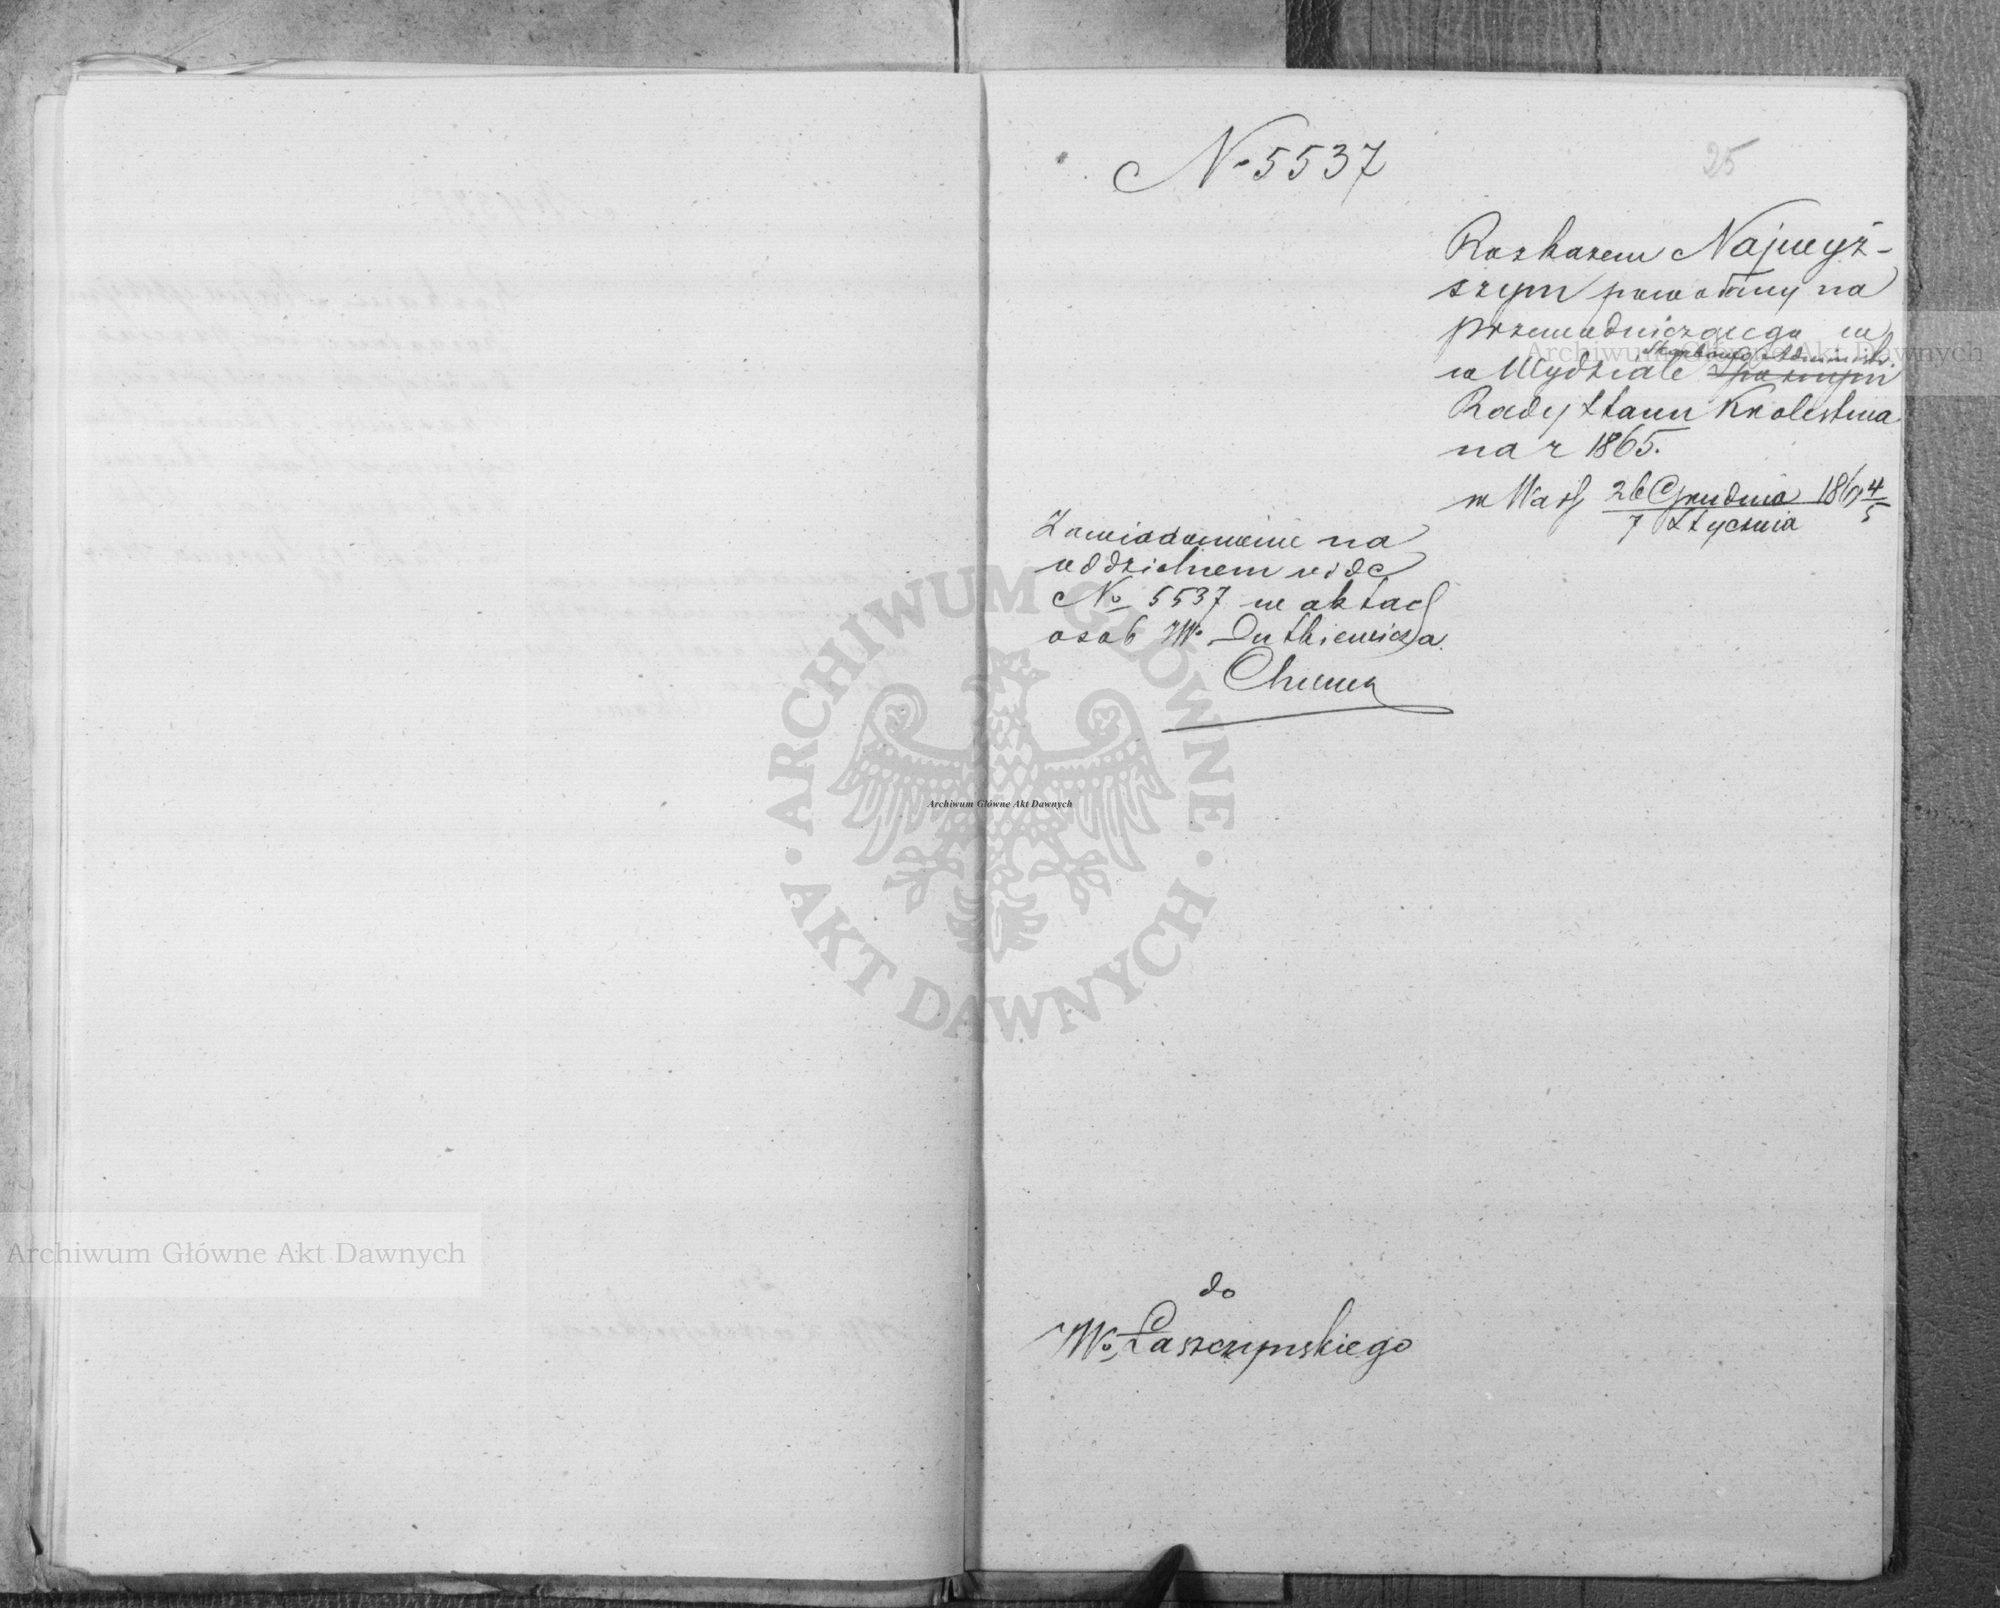 N. 5537
25
Rozkazem Najwyż-
szym powołany na
przewodniczącego w
Skarbowo Administr.
w Wydziale Spornym
Rady Stanu Krolestwa
na r 1865.
w Wars 26 Grudnia 1864/5
7 Stycznia
Zawiadomienie na
oddzielnem vide
No 5537 w aktach
osob W. Dutkiewicza
do
Wo Łaszczynskiego
ARCHIWUM GŁÓWNE
AKT DAWNYCH
Archiwum Główne Akt Dawnych
Archiwum Główne Akt Dawnych
Archiwum Główne Akt Dawnych